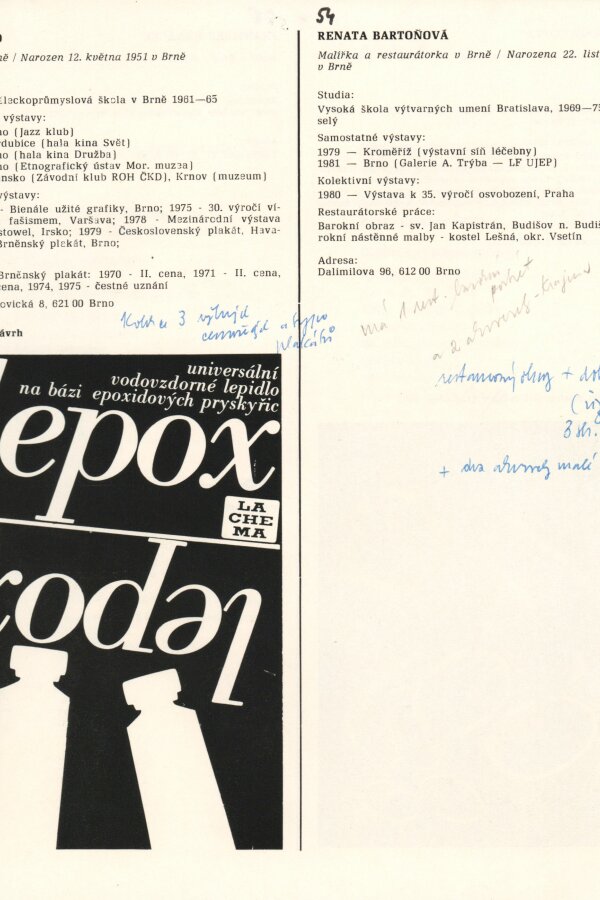 ně / Narozen 12. května 1951 v Brně
ěleckoprůmyslová škola v Brně 1961—65
výstavy:
no (Jazz klub)
rdubice (hala kina Svět)
no (hala kina Družba)
no (Etnografický ústav Mor. muzea)
nsko (Závodní klub ROH ČKD), Krnov (muzeum)
výstavy:
- Bienále užité grafiky, Brno; 1975 - 30. výročí ví-
fašismem, Varšava; 1978 - Mezinárodní výstava
stowel, Irsko; 1979 - Československý plakát, Hava-
Brněnský plakát, Brno;
Brněnský plakát: 1970 - II. cena, 1971 - II. cena,
cena, 1974, 1975 - čestné uznání
ovická 8, 621 00 Brno
3
ávrh
universální
vodovzdorné lepidlo
na bázi epoxidových pryskyřic
epox
LA
CHE
MA
lepox
54
RENATA BARTOŇOVÁ
Malířka a restaurátorka v Brně / Narozena 22. list
v Brně
Studia:
Vysoká škola výtvarných umení Bratislava, 1969—75
selý
Samostatné výstavy:
1979 — Kroměříž (výstavní síň léčebny)
1981 — Brno (Galerie A. Trýba — LF UJEP)
Kolektivní výstavy:
1980 — Výstava k 35. výročí osvobození, Praha
Restaurátorské práce:
Barokní obraz - sv. Jan Kapistrán, Budišov n. Budiš
rokní nástěnné malby - kostel Lešná, okr. Vsetín
Adresa:
Dalimilova 96, 612 00 Brno
má 1 rest.
a 2 akvarely - Krajina
+
3
+ dva akvarely malé